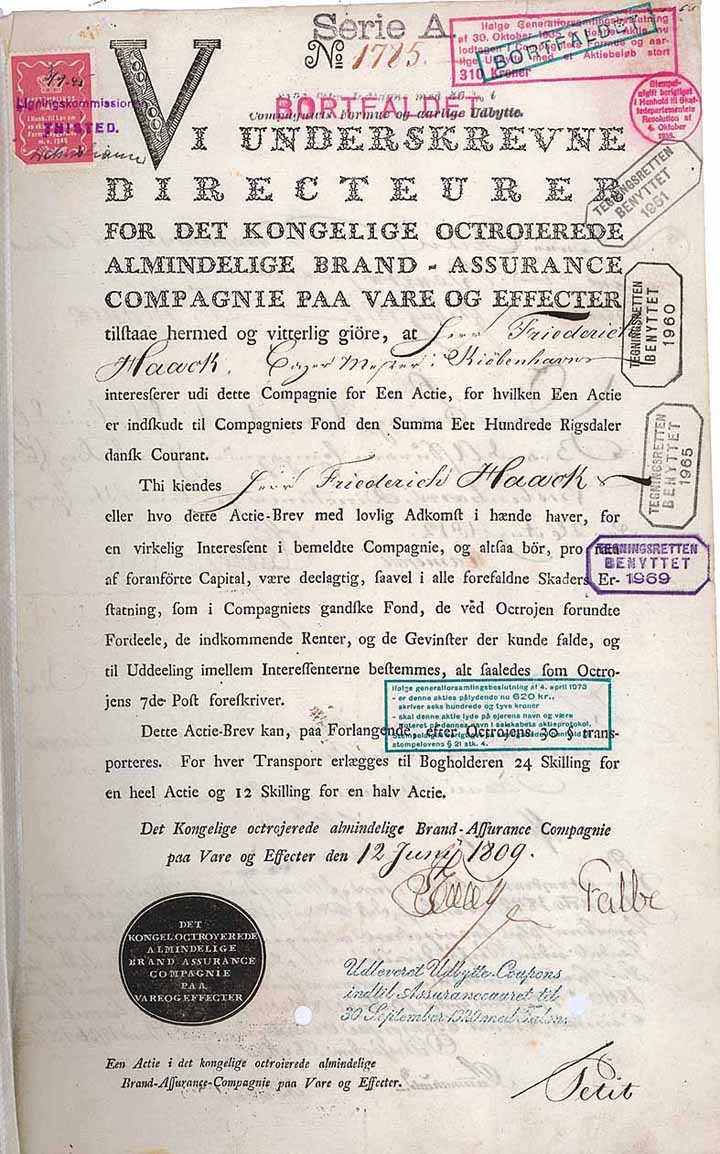 Serie A.
No. 1785.
Ifølge Generalforsamlingsbeslutning
af 30. Oktober 1935 er denne Aktie nu
lodtagen i Compagniets Formue og aar-
lige Udbytte med et Aktiebeløb stort
310 Kroner
BORTFALDET
Stempel-
afgift berigtiget
i Henhold til Skat-
tedepartementets
Resolution af
4. Oktober
1935.
Ligningskommission
THISTED.
BORTFALDET
Compagniets Formue og aarlige Udbytte.
VI UNDERSKREVNE
DIRECTEURER
FOR DET KONGELIGE OCTROIEREDE
ALMINDELIGE BRAND - ASSURANCE
COMPAGNIE PAA VARE OG EFFECTER
TEGNINGSRETTEN
BENYTTET
1961
TEGNINGSRETTEN
BENYTTET
1960
TEGNINGSRETTEN
BENYTTET
1965
TEGNINGSRETTEN
BENYTTET
1969
tilſtaae hermed og vitterlig giöre, at Herr Friederich
Haack, Meſter i Kiöbenhavn
intereſſerer udi dette Compagnie for Een Actie, for hvilken Een Actie
er indſkudt til Compagniets Fond den Summa Eet Hundrede Rigsdaler
danſk Courant.
Thi kiendes Herr Friederich Haack
eller hvo dette Actie-Brev med lovlig Adkomſt i hænde haver, for
en virkelig Intereſſent i bemeldte Compagnie, og altſaa bör, pro rata
af foranförte Capital, være deelagtig, ſaavel i alle forefaldne Skaders Er-
ſtatning, ſom i Compagniets gandſke Fond, de ved Octrojen forundte
Fordeele, de indkommende Renter, og de Gevinſter der kunde falde, og
til Uddeeling imellem Intereſſenterne beſtemmes, alt ſaaledes ſom Octro-
jens 7de Poſt foreſkriver.
Ifølge generalforsamlingsbeslutning af 4. april 1973
- er denne akties pålydende nu 620 kr.,
skriver seks hundrede og tyve kroner
- skal denne aktie lyde på ejerens navn og være
noteret på dennes navn i selskabets aktieprotokol.
stempelovens § 21 stk. 4.
Dette Actie-Brev kan, paa Forlangende, efter Octrojens 30 § trans-
porteres. For hver Transport erlægges til Bogholderen 24 Skilling for
en heel Actie og 12 Skilling for en halv Actie.
Det Kongelige octrojerede almindelige Brand-Aſſurance Compagnie
paa Vare og Effecter den 12 Juny 1809.
Falbe
DET
KONGEL.OCTROYEREDE
ALMINDELIGE
BRAND-ASSURANCE
COMPAGNIE
PAA
VARE OG EFFECTER
Udleveret Udbytte-Coupons
indtil Assuranceaaret til
30 September 1920 med Talon.
Een Actie i det kongelige octroierede almindelige
Brand-Aſſurance-Compagnie paa Vare og Effecter.
Petit